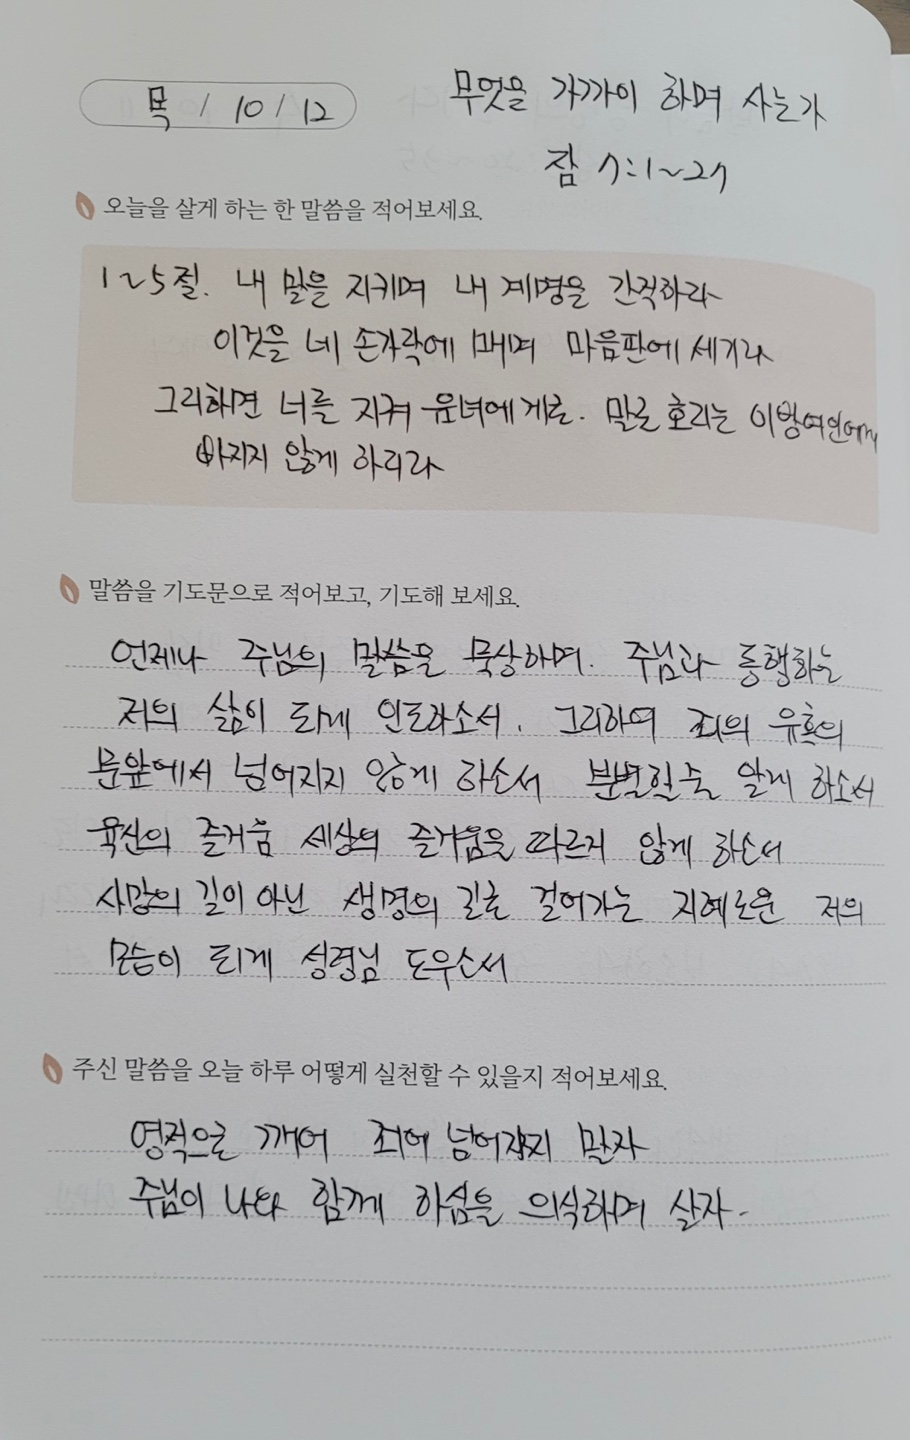 목 / 10 / 12
무엇을 가까이 하며 사는가
잠 7:1~27
오늘을 살게 하는 한 말씀을 적어보세요.
1~5절. 내 말을 지키며 내 계명을 간직하라
이것을 네 손가락에 매며 마음판에 새기라
그리하면 너를 지켜 음녀에게로. 말로 호리는 이방여인에게
빠지지 않게 하리라
말씀을 기도문으로 적어보고, 기도해 보세요.
언제나 주님의 말씀을 묵상하며. 주님과 동행하는
저의 삶이 되게 인도하소서. 그리하여 죄의 유혹의
문앞에서 넘어지지 않게 하소서 분별할줄 알게 하소서
육신의 즐거움 세상의 즐거움을 따르지 않게 하소서
사망의 길이 아닌 생명의 길로 걸어가는 지혜로운 저의
모습이 되게 성령님 도우소서
주신 말씀을 오늘 하루 어떻게 실천할 수 있을지 적어보세요.
영적으로 깨어 죄에 넘어지지 말자
주님이 나와 함께 하심을 의식하며 살자.